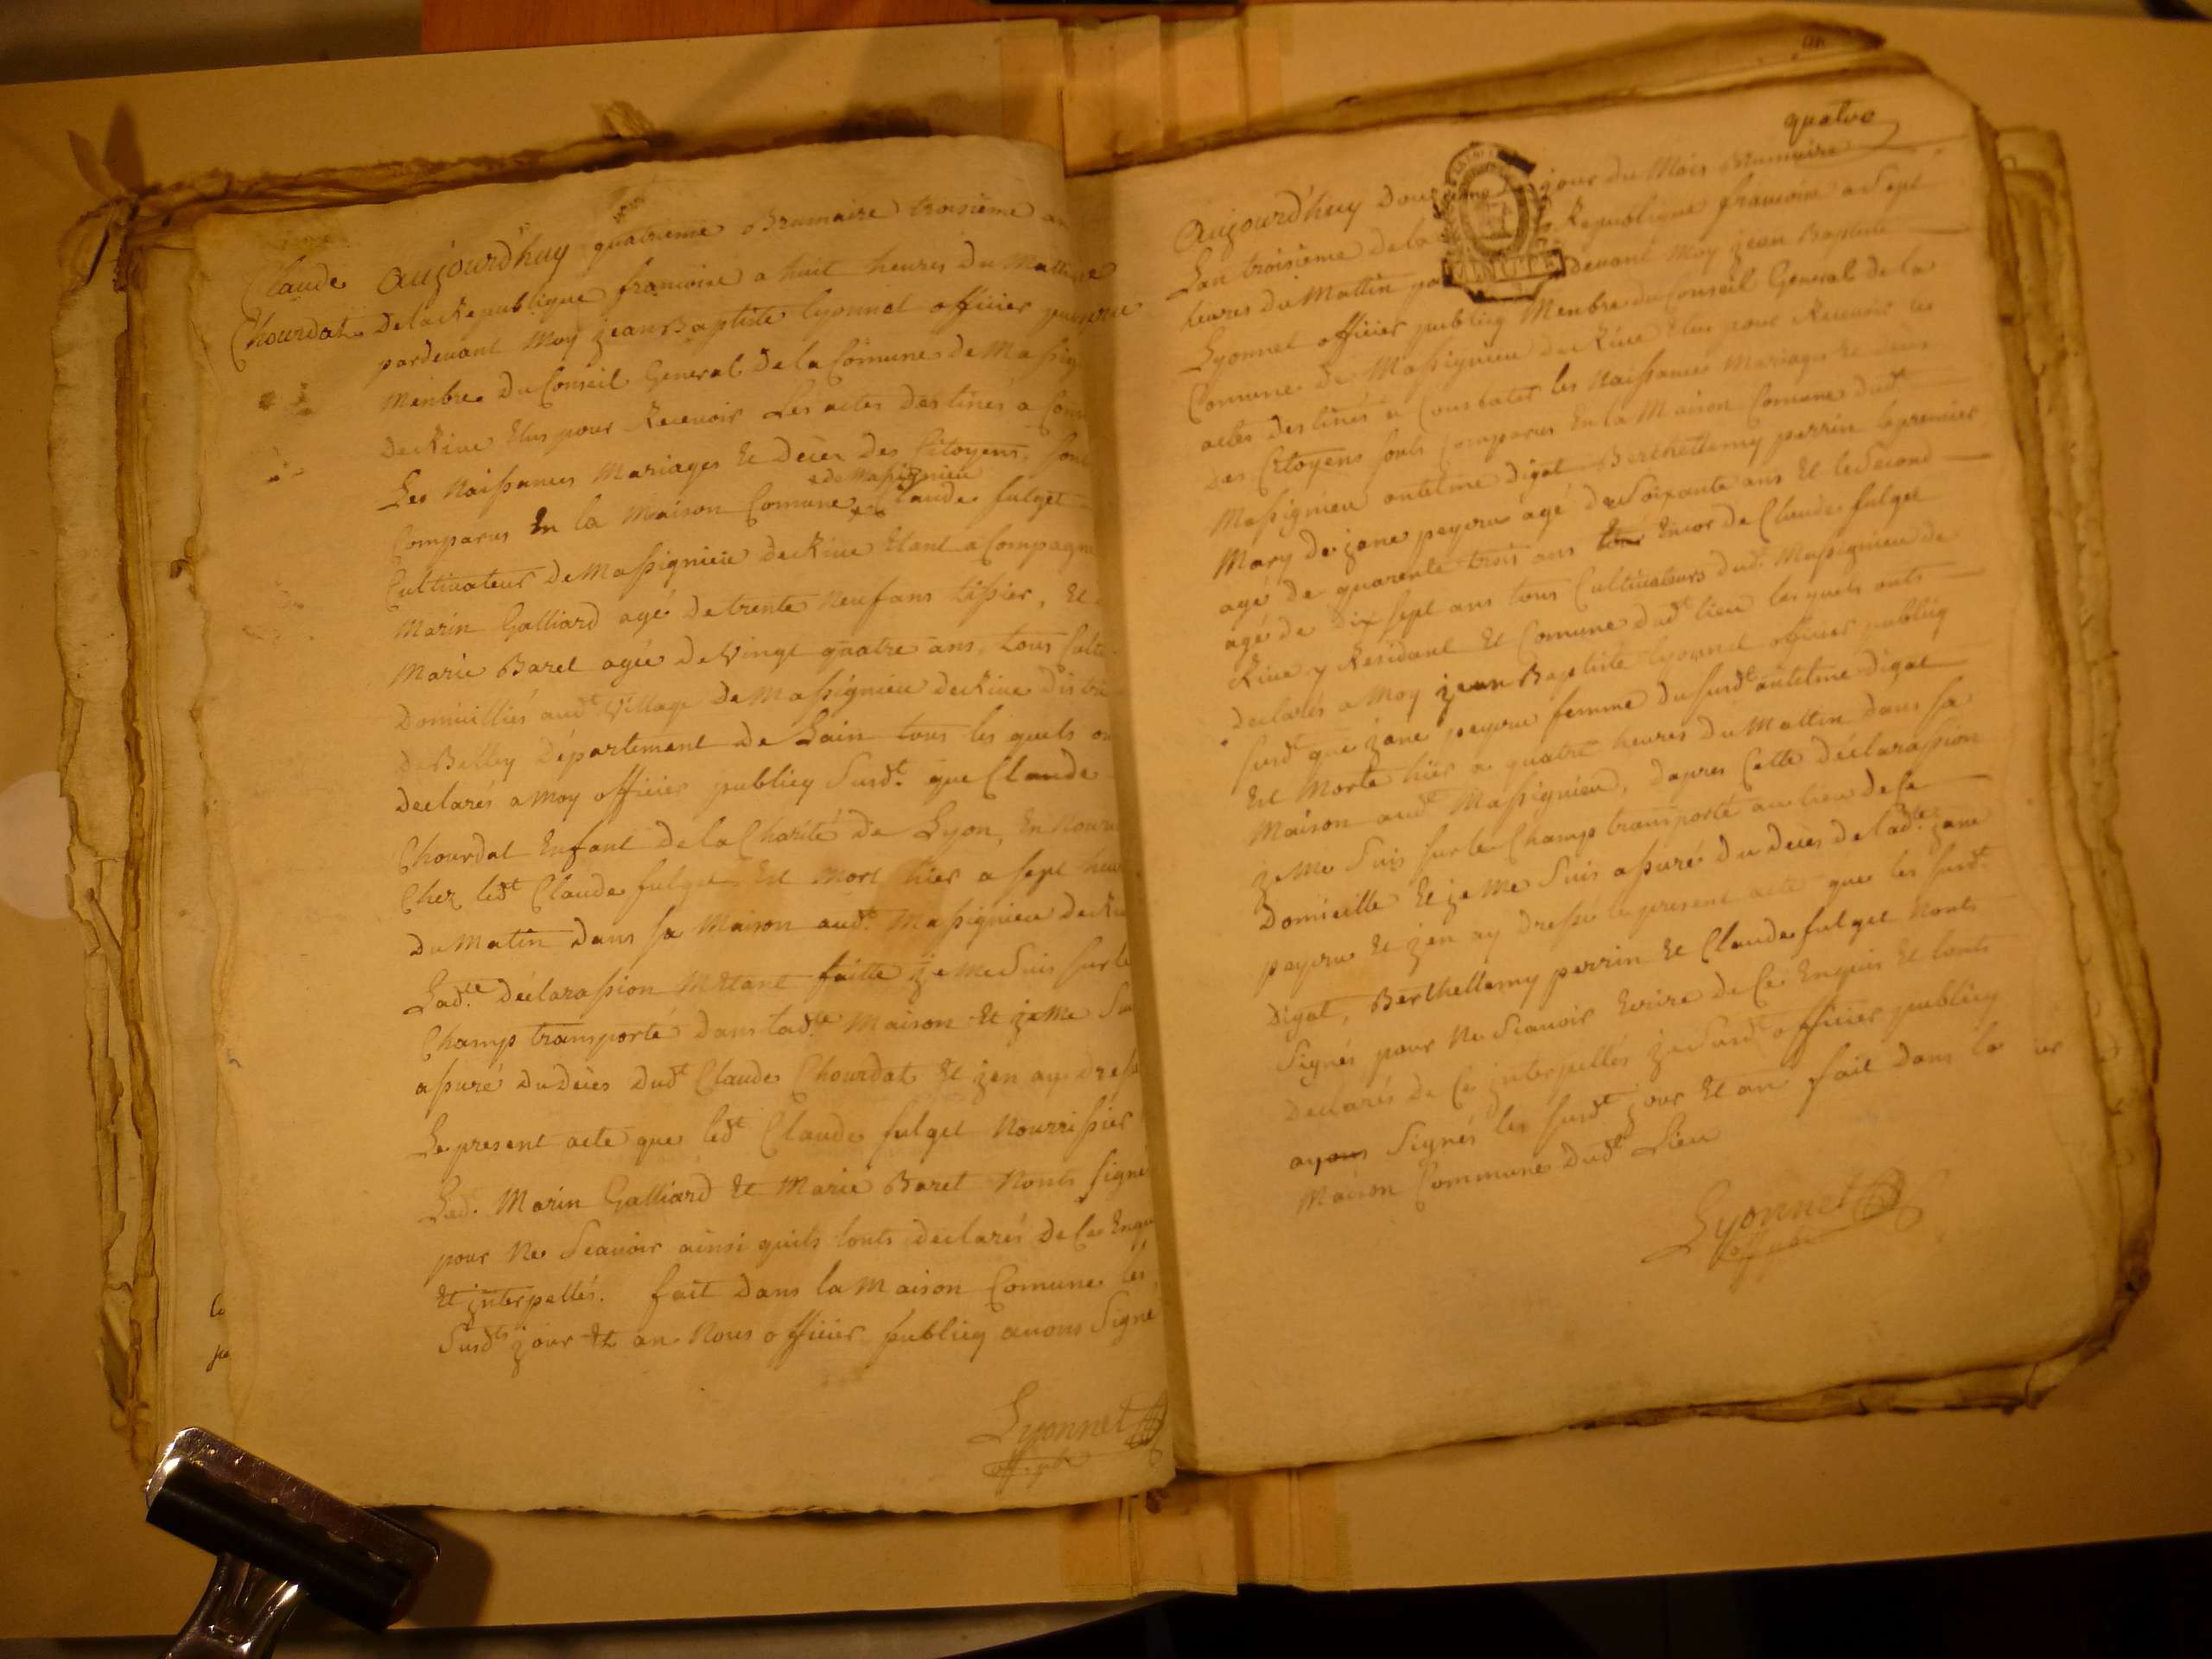 Claude
Chourdat
Aujourd'huy quatrieme Brumaire troisieme an
de la Republique francoise a huit heures du Mattin
pardevant Moy jean Baptiste Lyonnet officier publicq
Menbre du Conseil General de la Comune de Massig
de Rive Elus pour Recevoir Les actes destinés a Cons
Les Naissances Mariages Et deces des Citoyens, sont
+ de Massignieu
Comparus En la Maison Comune + Claude fulget
Cultivateur de Massignieu de Rive Etant acompagné
Marin Galliard agé de trente Neuf ans tissier, Et
Marie Baret agée de Vingt quatre ans, tous Culti
Domicilliés audt Village de Massignieu de Rive distri
de Belley Département de Lain tous les quels on
declarés a Moy officier publicq Susdt. que Claude
Chourdat Enfant de la Charité de Lyon, En Nourri
Chez ledt Claude fulget, Est Mort hier a sept heu
du Matin dans sa Maison audt. Massignieu de Ri
Ladte. déclarassion Metant faitte je me Suis sur le
Champ transporté dans ladte Maison Et je me Sui
assuré du deces dudt Claude Chourdat Et jen ay dressé
Le present acte que ledt Claude fulget Nourrissier
Led. Marin Galliard Et Marie Baret Nonts Signé
pour Ne Scavoir ainsi quils lonts declarés de Ce Enqu
Et jnterpellés. fait dans la Maison Comune les
Susdts jour Et an Nous officier publicq avons Signé
Lyonnet
off. pub
quatre
Aujourd'huy jour du Mois Brumaire
Lan troisieme de la Republique francoise a Sept
heures du Mattin devant Moy jean Baptiste
Lyonnet officier publicq Menbre du Conseil General de la
Comune de Massignieu de Rive Elus pour Recevoir les
actes destinés a Constater les Naissances Mariages Et deces
des Citoyens sonts Comparus En la Maison Comune dudt
Massignieu antelme digat Berthellemy perrin le premier
Mary de jane peyeru agé de Soixante ans Et le Second
agé de quarente trois ans Encor de Claude fulget
agé de dix sept ans tous Cultivateurs dudt. Massignieu de
Rive y Residant Et Comune dudt lieu les quels onts
declarés a Moy jean Baptiste Lyonnet officier publicq
susdt que jane peyeru femme du susdt antelme digat
Est Morte hier a quatre heures du Mattin dans sa
Maison audt Massignieu, dapres Cette déclarassion
je Me Suis sur le Champ transporté au lieu de Ce
Domicille Et je Me Suis assuré du deces de ladte jane
peyeru Et jen ay dressé le present acte que les susdt.
digat, Berthellemy perrin Et Claude fulget Nonts
Signés pour Ne Scavoir Ecrire de Ce Enquis Et lonts
declarés de Ce jnterpellés je Susdt officier publicq
ayons Signés les susdt jour Et an fait dans la
Maison Commune dudt Lieu
Lyonnet
off pub